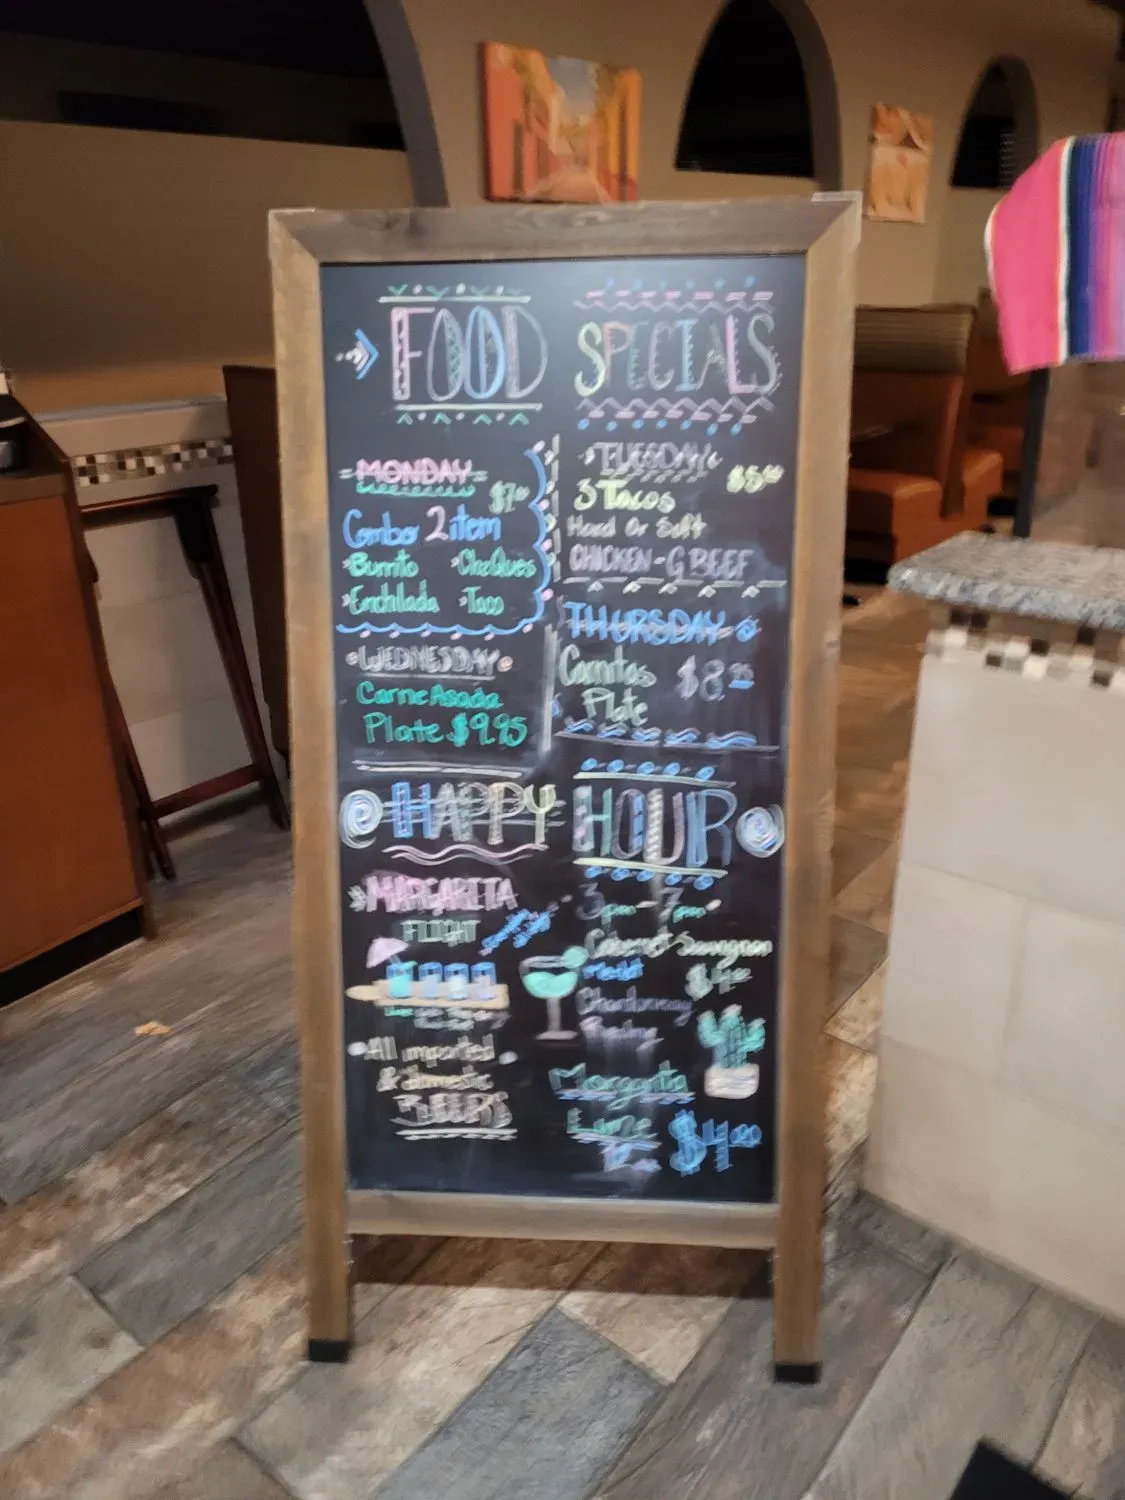 FOOD SPECIALS
MONDAY
$7.00
Combo 2 item
Burrito
Enchilada Taco
WEDNESDAY
Carne Asada
Plate $9.95
TUESDAY
$5.00
3 Tacos
Hard Or Soft
CHICKEN - G BEEF
THURSDAY
Carnitas $8.95
Plate
HAPPY HOUR
3pm - 7pm
MARGARITA
FLIGHT
All imported
& domestic
BEERS
Cabernet Sauvignon
Merlot
Chardonnay
Margarita
Lime
$4.00